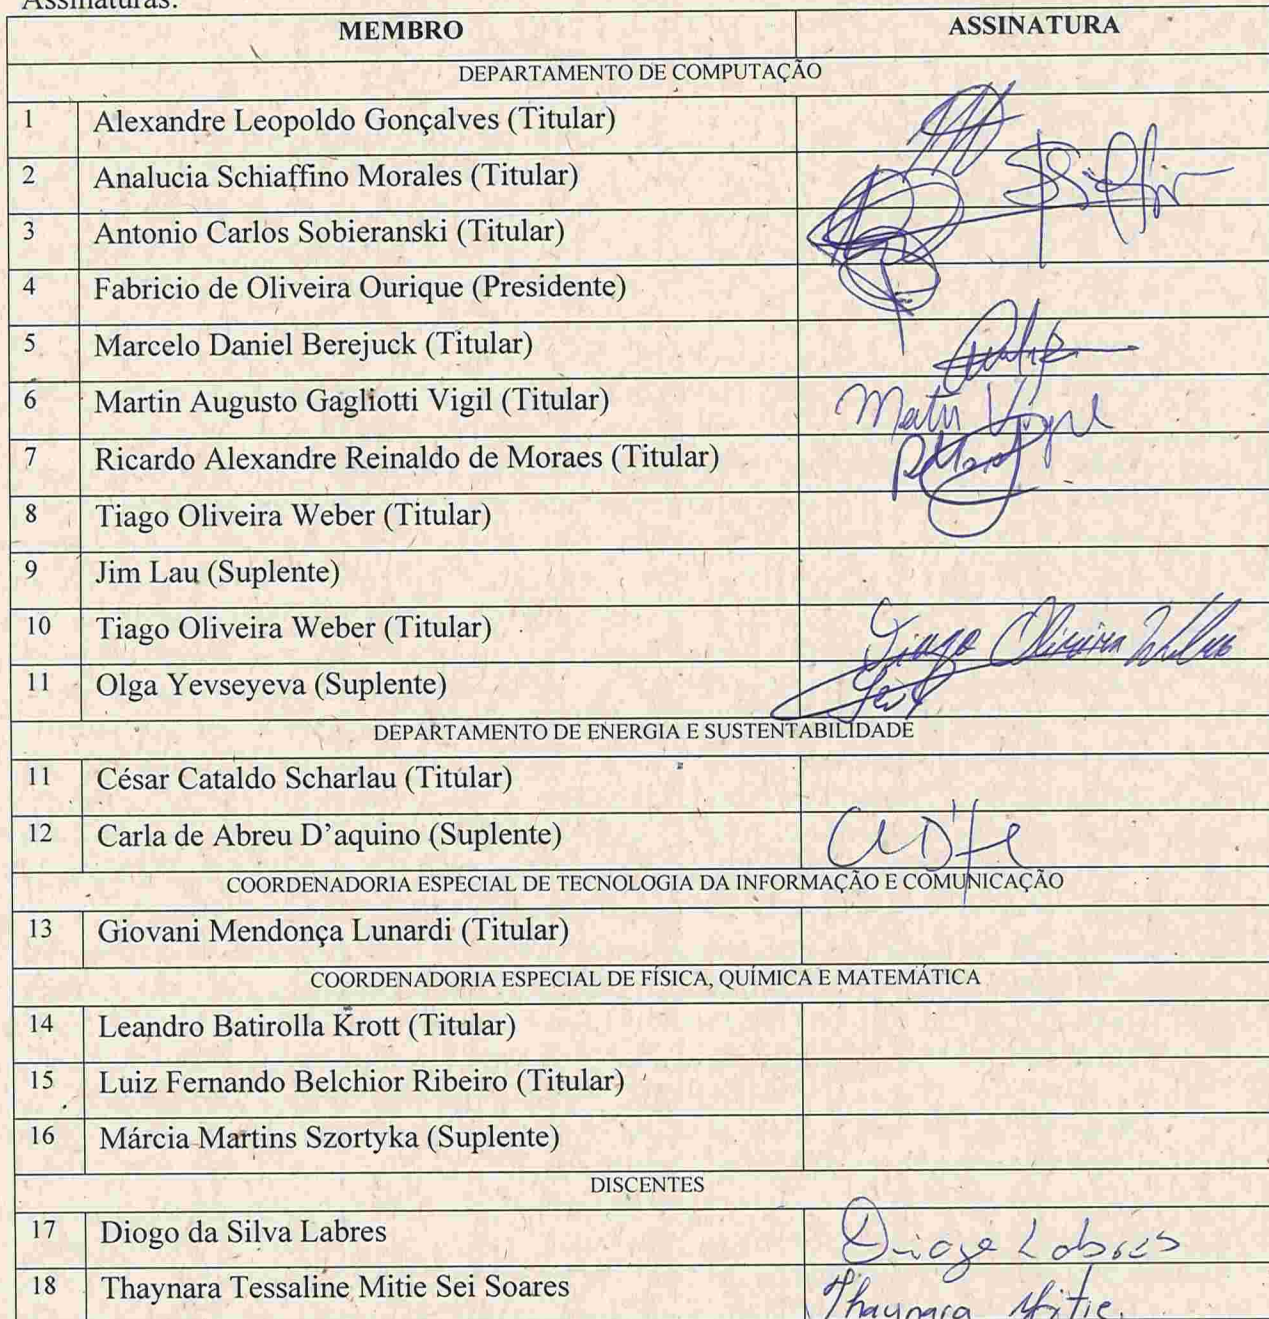 Assinaturas:
MEMBRO ASSINATURA
DEPARTAMENTO DE COMPUTAÇÃO
1 Alexandre Leopoldo Gonçalves (Titular)
2 Analucia Schiaffino Morales (Titular)
3 Antonio Carlos Sobieranski (Titular)
4 Fabricio de Oliveira Ourique (Presidente)
5 Marcelo Daniel Berejuck (Titular)
6 Martin Augusto Gagliotti Vigil (Titular)
7 Ricardo Alexandre Reinaldo de Moraes (Titular)
8 Tiago Oliveira Weber (Titular)
9 Jim Lau (Suplente)
10 Tiago Oliveira Weber (Titular) Tiago Oliveira Weber
11 Olga Yevseyeva (Suplente)
DEPARTAMENTO DE ENERGIA E SUSTENTABILIDADE
11 César Cataldo Scharlau (Titular)
12 Carla de Abreu D’aquino (Suplente)
COORDENADORIA ESPECIAL DE TECNOLOGIA DA INFORMAÇÃO E COMUNICAÇÃO
13 Giovani Mendonça Lunardi (Titular)
COORDENADORIA ESPECIAL DE FÍSICA, QUÍMICA E MATEMÁTICA
14 Leandro Batirolla Krott (Titular)
15 Luiz Fernando Belchior Ribeiro (Titular)
16 Márcia Martins Szortyka (Suplente)
DISCENTES
17 Diogo da Silva Labres Diogo Labres
18 Thaynara Tessaline Mitie Sei Soares Thaynara Mitie